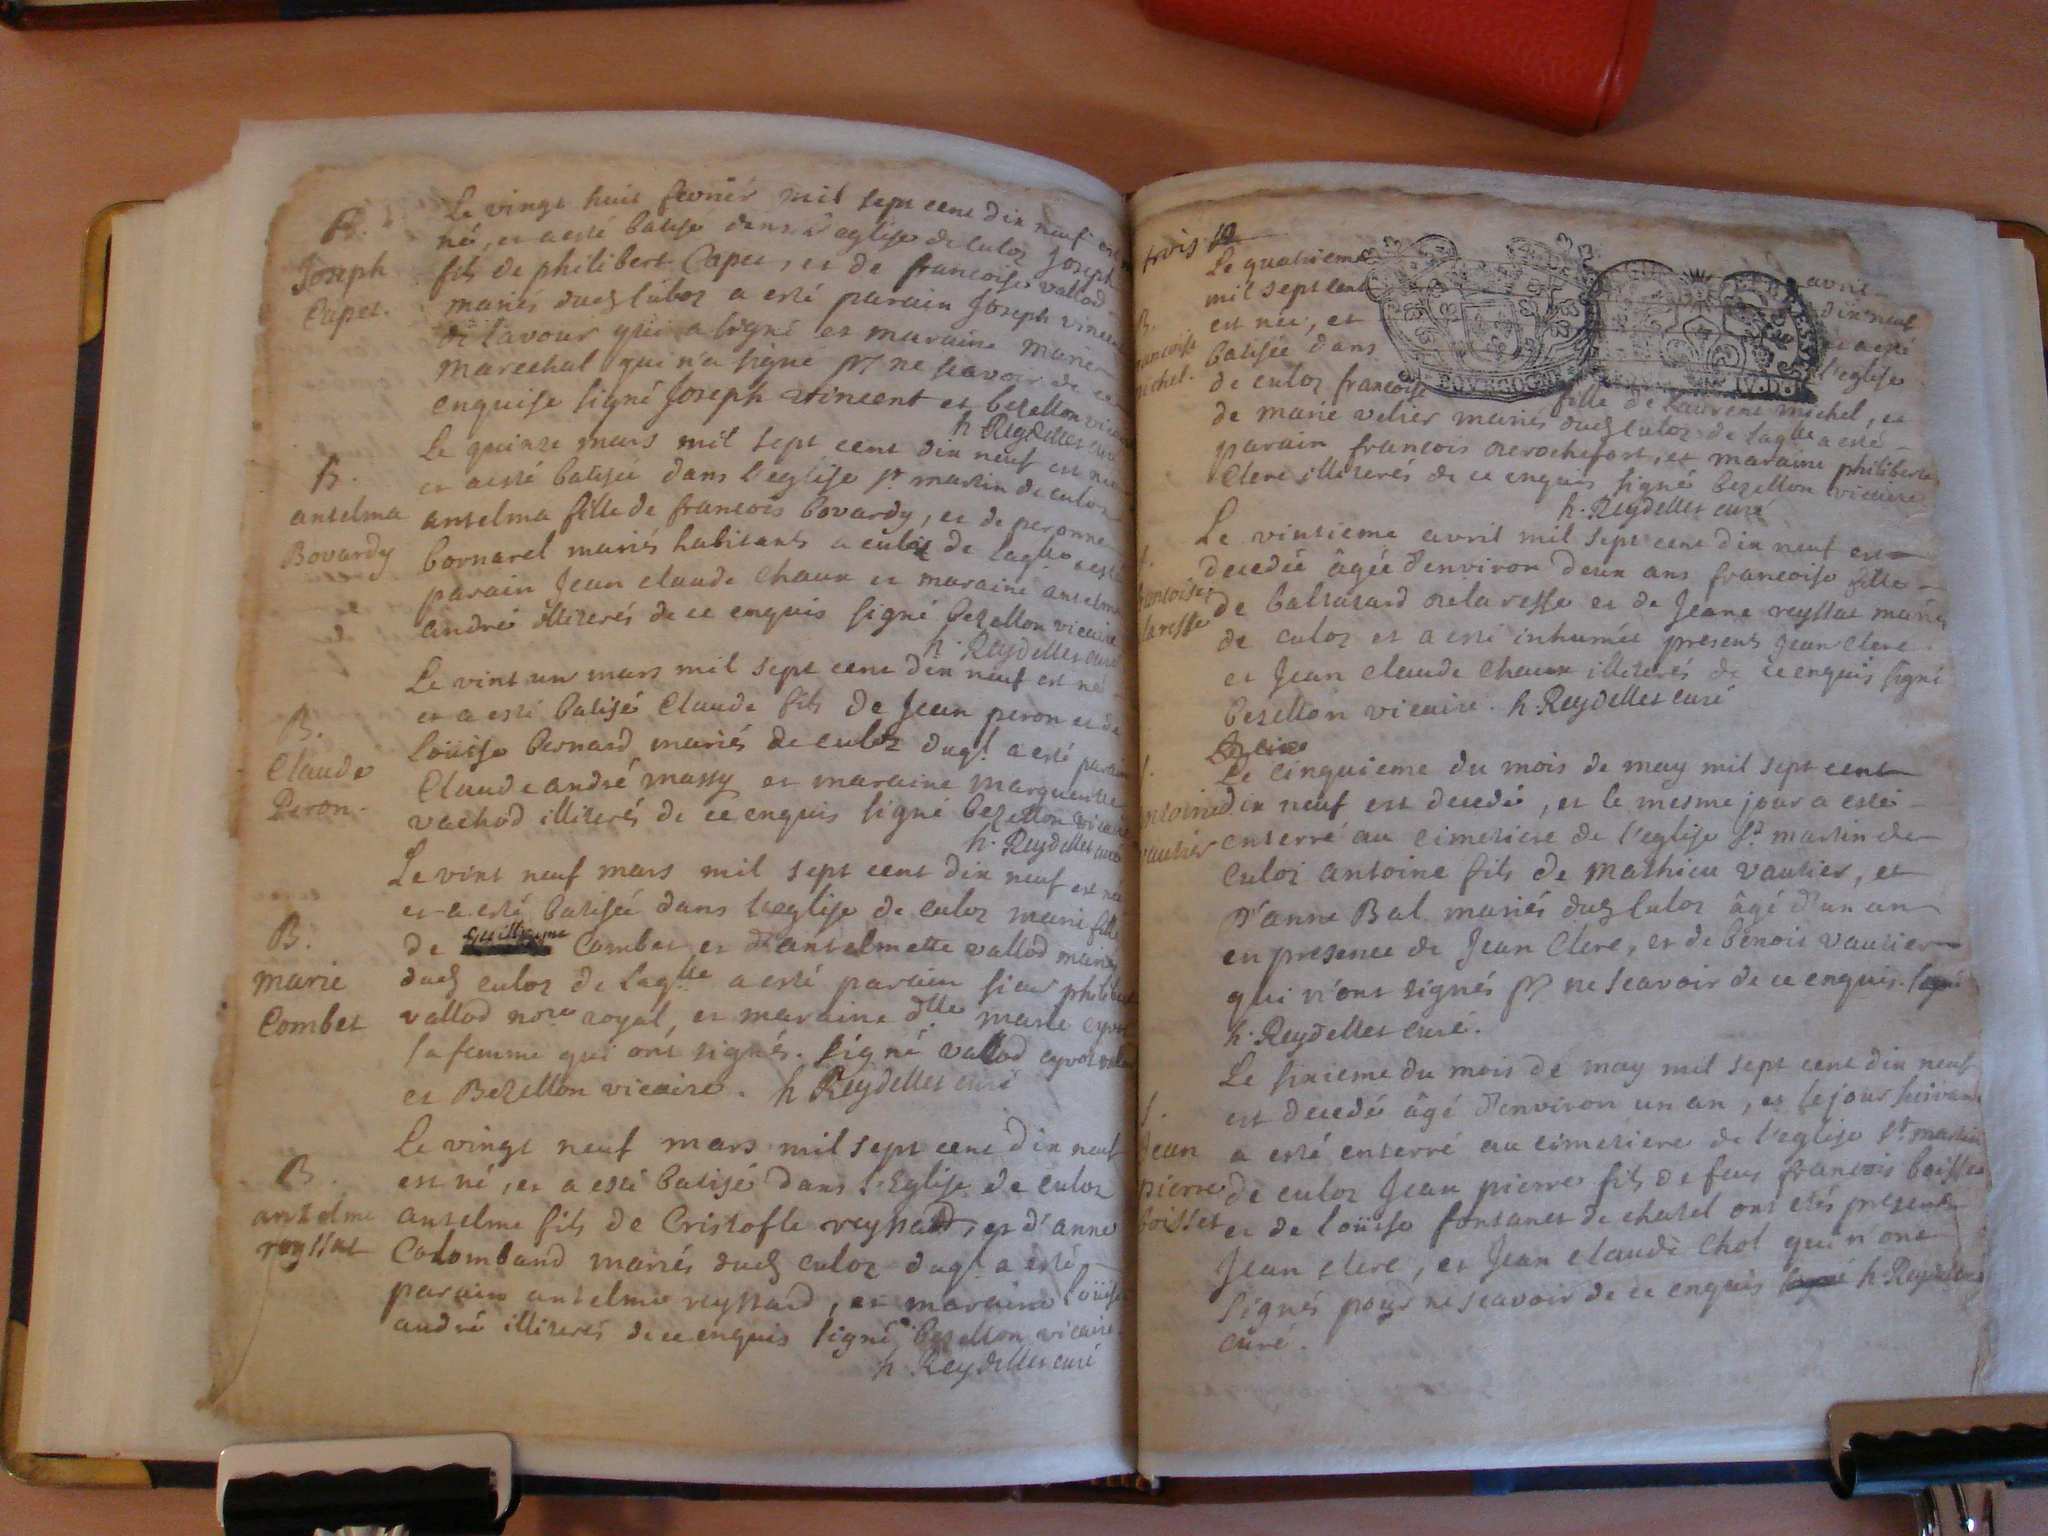 B.
Joseph
Capet.
Le vingt huit fevrier mil sept cent dix neuf est
né, et a esté batisé dans l'eglise de culoz Joseph
fils de philibert Capet, et de francoise vallod
mariés dud culoz a esté parain Joseph vincent
de lavour qui a signé et maraine marie
marechal qui n'a signé pr ne scavoir de ce
enquise signé Joseph vincent et bezellon vicaire
h Reydellet curé
B.
antelma
Bovardy
Le quinze mars mil sept cent dix neuf est née
et a esté batisée dans l'eglise st martin de culoz
antelma fille de francois bovardy, et de peronne
bornarel mariés habitants a culoz de laqlle a esté
parain Jean claude chaux et maraine antelma
andré illiterés de ce enquis signé bezellon vicaire
h. Reydellet curé
B.
Claude
Peron.
Le vint un mars mil sept cent dix neuf est né
et a esté batisé Claude fils de Jean peron et de
Loüise bernard mariés de culoz duql a esté parain
Claude andré massy et maraine marguerite
vachod illiterés de ce enquis signé bezellon vicaire
h. Reydellet curé
B.
marie
Combet
Le vint neuf mars mil sept cent dix neuf est née
et a esté batisée dans l'eglise de culoz marie fille
de guillaume Combet et d'antelmette vallod mariés
dud culoz de laqlle a esté parain sieur philibert
vallod nore royal, et maraine dlle marie cyvot
sa femme qui ont signés. signé vallod cyvot
et Bezellon vicaire. h Reydellet curé
B.
antelme
reyssat
Le vingt neuf mars mil sept cent dix neuf
est né, et a esté batisé dans l'Eglise de culoz
antelme fils de Cristofle reyssard, et d'anne
Colomband mariés dud culoz duql a esté
parain antelme reyssard, et maraine Loüise
andré illiterés de ce enquis signé bezellon vicaire.
h. Reydellet curé
trois
B.
francoise
michel.
Le quatrieme avril
mil sept cent dix neuf
est née, et a esté
batisée dans l'eglise
de culoz francoise fille de Laurent michel, et
de marie velier mariés dud culoz de laqlle a esté
parain francois derochefort, et maraine philiberte
Clerc illiterés de ce enquis signé bezellon vicaire
h. Reydellet curé
francoise
laresse
Le vintieme avril mil sept cent dix neuf est
decedée âgée d'environ deux ans francoise fille
de baltazard delaresse et de Jeane reyssat mariés
de culoz et a esté inhumée presents Jean Clerc
et Jean claude chaux illiterés de ce enquis signé
bezellon vicaire. h. Reydellet curé
antoine
vautier
Le cinquieme du mois de may mil sept cent
dix neuf est decedé, et le mesme jour a esté
enterré au cimetiere de l'eglise st martin de
Culoz antoine fils de mathieu vautier, et
d'anne Bal mariés dud culoz âgé d'un an
en presence de Jean Clerc, et de benoit vautier
qui n'ont signés pr ne scavoir de ce enquis. signé
h. Reydellet curé.
Jean
pierre
boisset
Le sixieme du mois de may mil sept cent dix neuf
est decedé âgé d'environ un an, et le jour suivant
a esté enterré au cimetiere de l'eglise st martin
de culoz Jean pierre fils de feus francois boisset
et de Loüise fontanet de chatel ont etés presents
Jean clerc, et Jean claude Chol qui n'ont
signés pour ne scavoir de ce enquis signé h. Reydellet
curé.